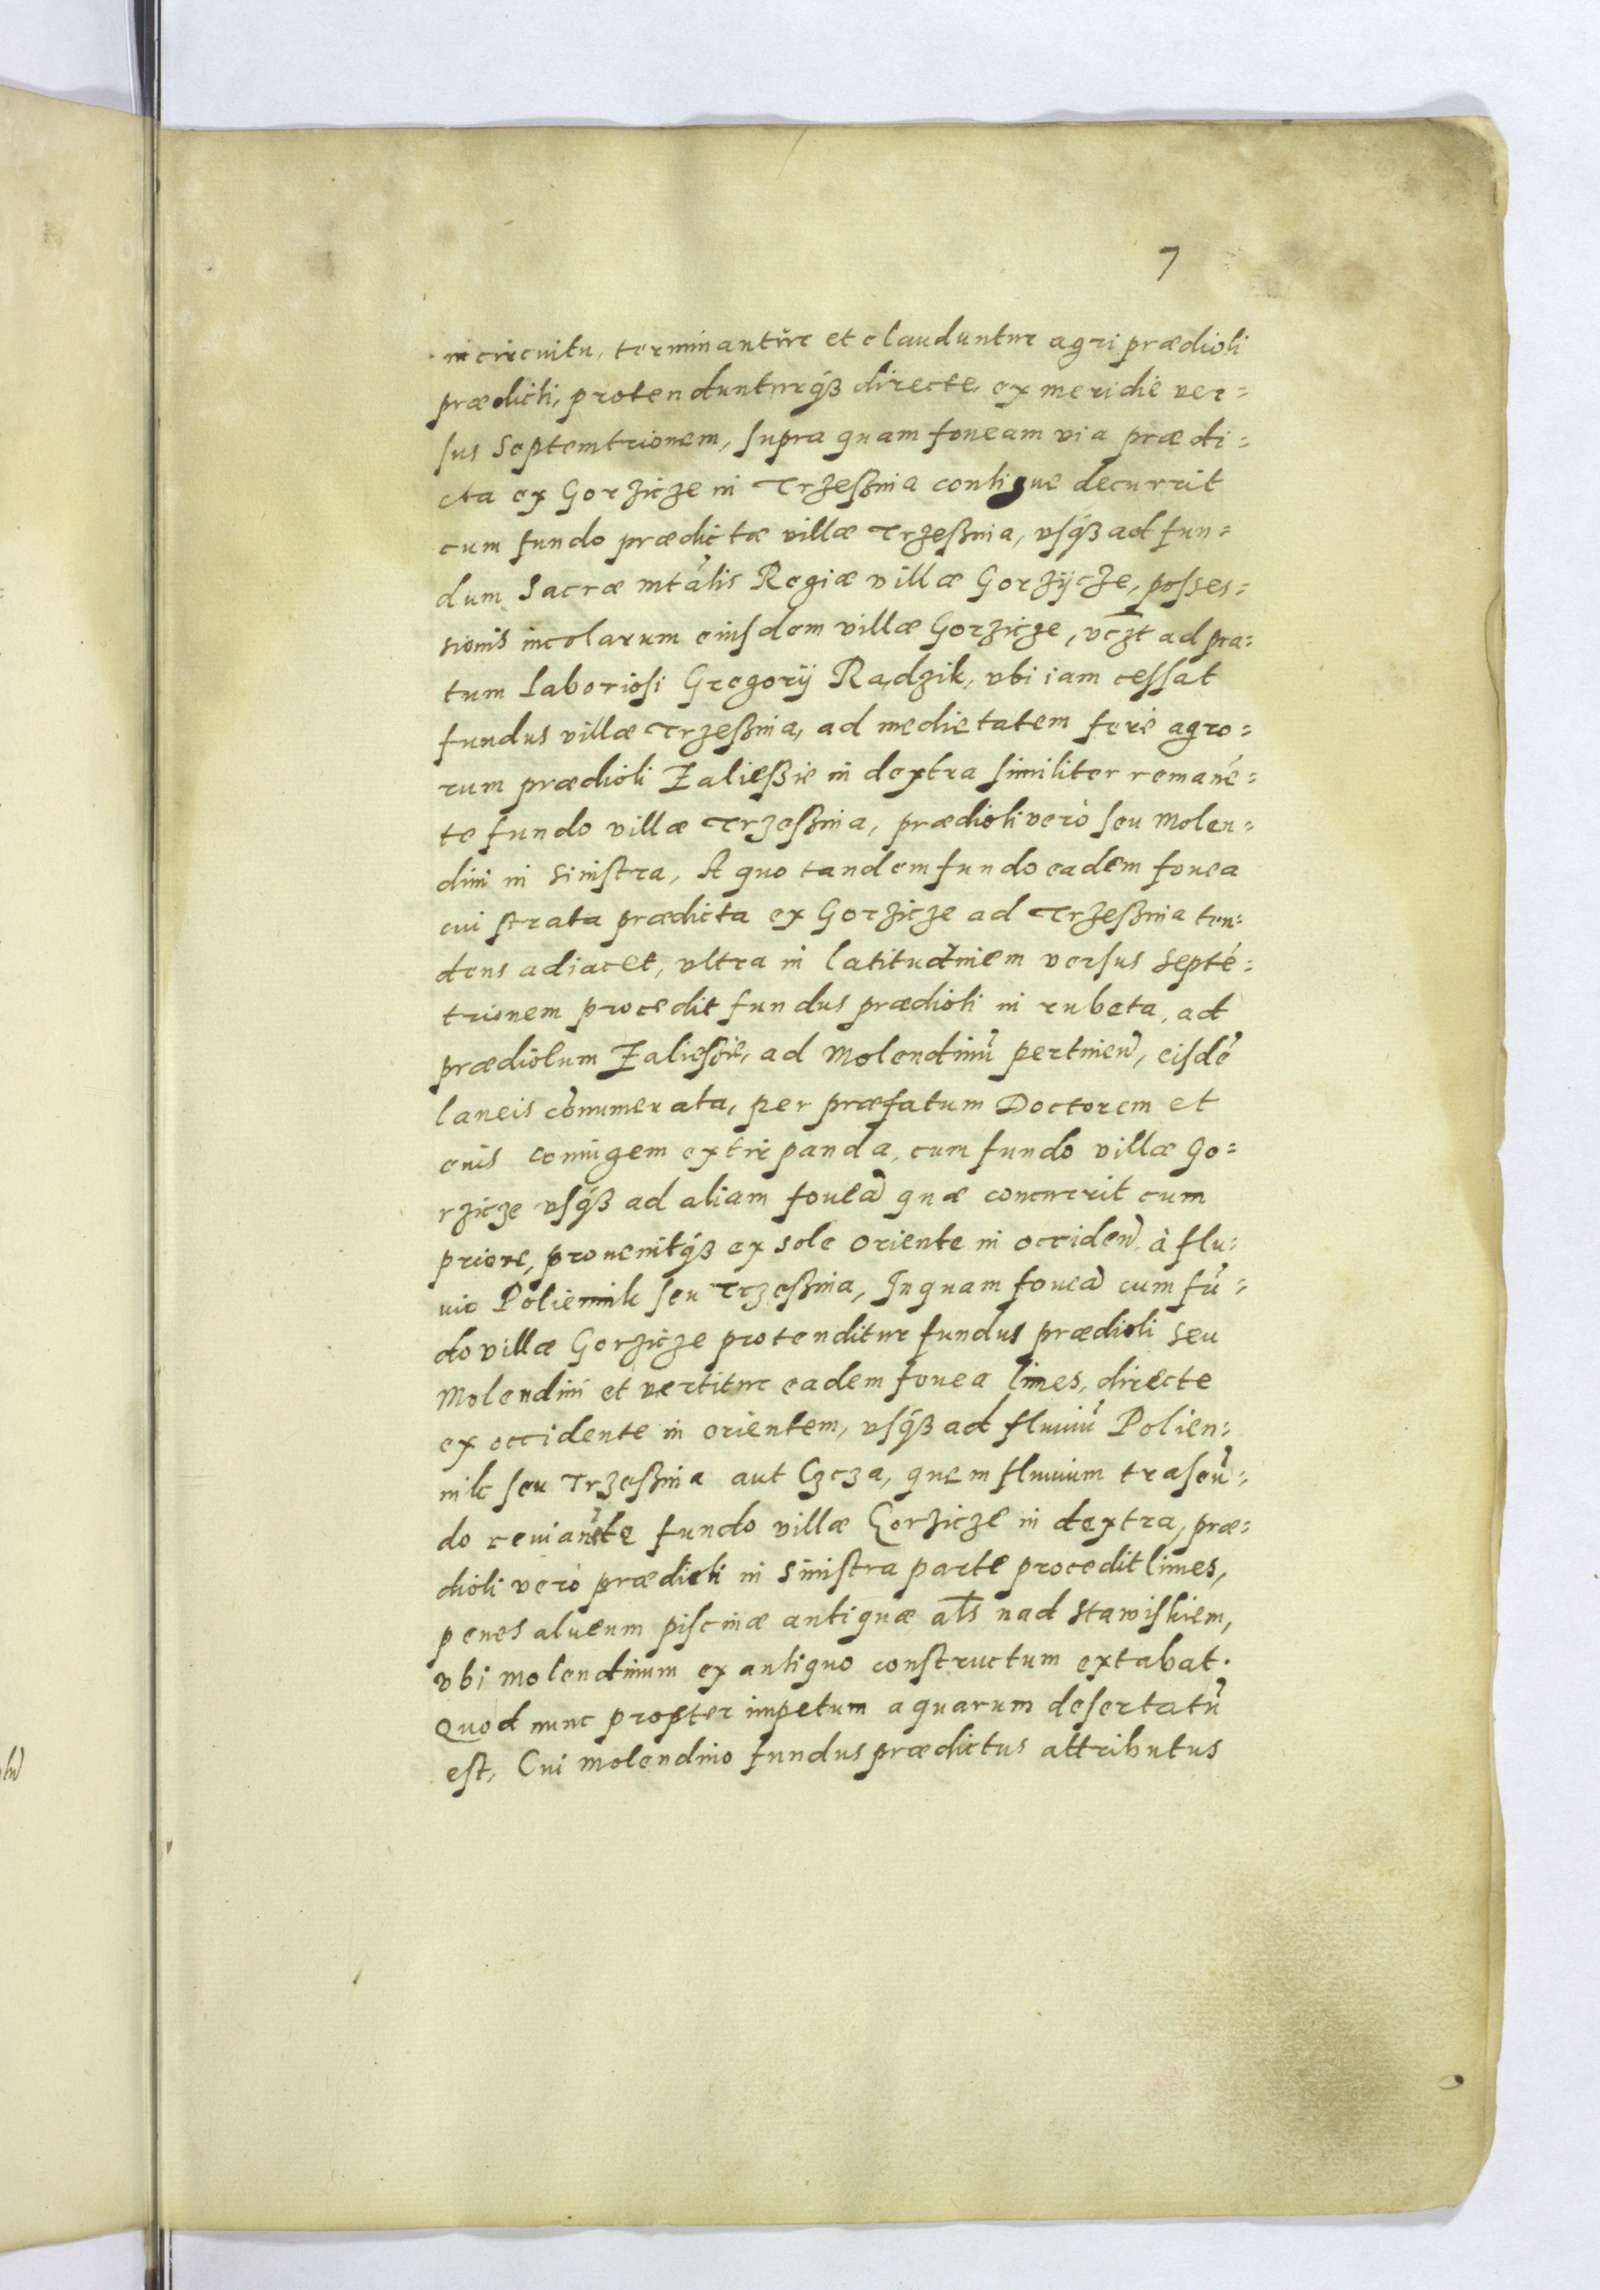 7
in circuitu, terminantur et clauduntur agri prædioli
prædicti, protendunturq́ꝫ directe, ex meridie ver=
sus Septemtrionem, supra quam foueam via prædi=
cta ex Gorzicze in Trzeßnia contigue decurrit
cum fundo prædictæ villæ Trzeßnia, vsq́ꝫ ad fun=
dum Sacræ mtãlis Regiæ villæ Gorzÿcze, posses=
sionis incolarum eiusdem villæ Gorzicze, vczt ad pra=
tum laboriosi Gregorÿ Radzik, vbi iam cessat
fundus villæ Trzeßnia, ad medietatem ferè agro=
rum prædioli Zaließie in dextra similiter remanẽ=
te fundo villæ Trzeßnia, prædioli verò seu Molen=
dini in sinistra, A quo tandem fundo eadem fouea
cui strata prædicta ex Gorzicze ad Trzeßnia ten=
dens adiacet, vltra in latitudinem versus Septẽ=
trionem procedit fundus prædioli in rubeta, ad
prædiolum Zaliesie, ad Molendinũ pertinen̄, eisdẽ
laneis cõnumerata, per præfatum Doctorem et
euis coniugem extirpanda, cum fundo villæ Go=
rzicze vsq́ꝫ ad aliam foueã quæ concurrit cum
priore, prouenitq́ꝫ ex sole oriente in occiden̄ à flu=
uio Poliennik seu Trzeßnia, In quam foueã cum fũ=
do villæ Gorzicze protenditur fundus prædioli seu
Molendini et vertitur eadem fouea limes, directe
ex occidente in orientem, vsq́ꝫ ad fluuiũ Polien=
nik seu Trzeßnia aut Czcza, quem fluuium trãseũ=
do remanẽte fundo villæ Gorzicze in dextra, præ=
dioli verò prædicti in sinistra parte procedit limes,
penes alueum piscinæ antiquæ als nad Stawiskiem,
vbi molendinum ex antiquo constructum extabat.
Quod nunc propter impetum aquarum desertatũ
est, Cui molendino fundus prædictus attributus